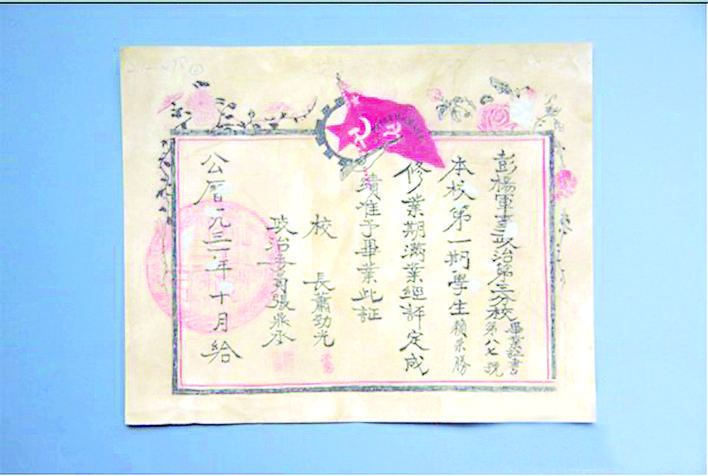 彭楊軍事政治第三分校畢業証書
第八七號
本校第一期學生賴榮勝
修業期滿業經評定成
績准予畢業此証
校長蕭勁光
政治委員張兆承
公曆一九三一年十月給